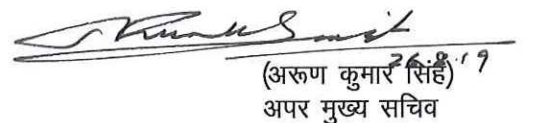 26.8.19
(अरूण कुमार सिंह)
अपर मुख्य सचिव